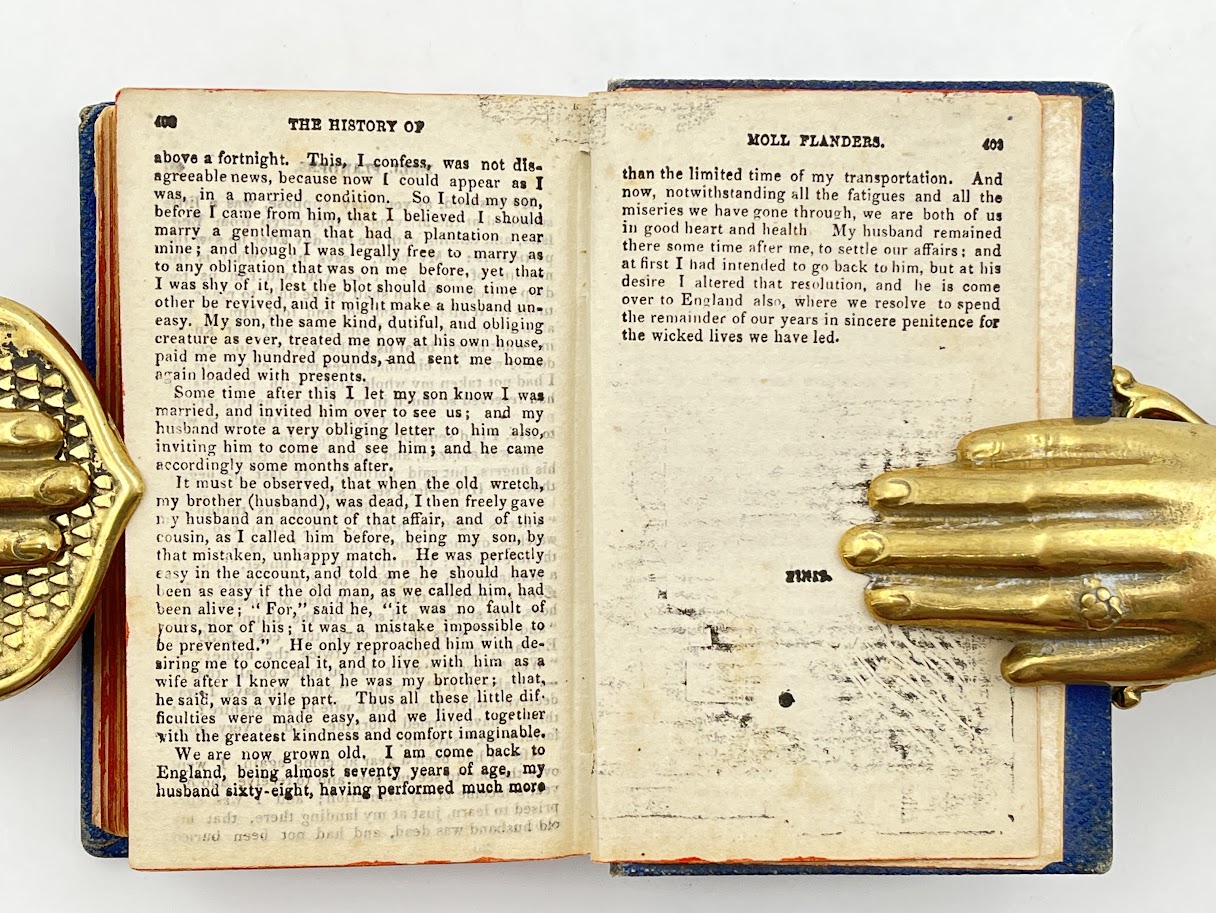 402 THE HISTORY OF
above a fortnight. This, I confess, was not dis-
agreeable news, because now I could appear as I
was, in a married condition. So I told my son,
before I came from him, that I believed I should
marry a gentleman that had a plantation near
mine; and though I was legally free to marry as
to any obligation that was on me before, yet that
I was shy of it, lest the blot should some time or
other be revived, and it might make a husband un-
easy. My son, the same kind, dutiful, and obliging
creature as ever, treated me now at his own house,
paid me my hundred pounds, and sent me home
again loaded with presents.
Some time after this I let my son know I was
married, and invited him over to see us; and my
husband wrote a very obliging letter to him also,
inviting him to come and see him; and he came
accordingly some months after.
It must be observed, that when the old wretch,
my brother (husband), was dead, I then freely gave
my husband an account of that affair, and of this
cousin, as I called him before, being my son, by
that mistaken, unhappy match. He was perfectly
easy in the account, and told me he should have
been as easy if the old man, as we called him, had
been alive; "For," said he, "it was no fault of
yours, nor of his; it was a mistake impossible to
be prevented." He only reproached him with de-
siring me to conceal it, and to live with him as a
wife after I knew that he was my brother; that,
he said, was a vile part. Thus all these little dif-
ficulties were made easy, and we lived together
with the greatest kindness and comfort imaginable.
We are now grown old. I am come back to
England, being almost seventy years of age, my
husband sixty-eight, having performed much more
MOLL FLANDERS. 403
than the limited time of my transportation. And
now, notwithstanding all the fatigues and all the
miseries we have gone through, we are both of us
in good heart and health My husband remained
there some time after me, to settle our affairs; and
at first I had intended to go back to him, but at his
desire I altered that resolution, and he is come
over to England also, where we resolve to spend
the remainder of our years in sincere penitence for
the wicked lives we have led.
FINIS.